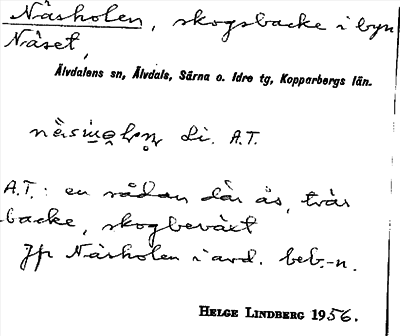 Näsholen, skogsbacke i byn
Näset,
Älvdalens sn, Älvdals, Särna o. Idre tg, Kopparbergs län.
di. A.T.
A.T.: en sådan där ås, tvär
backe, skogbeväxt
Jfr Näsholen i avd. beb.-n.
HELGE LINDBERG 1956.